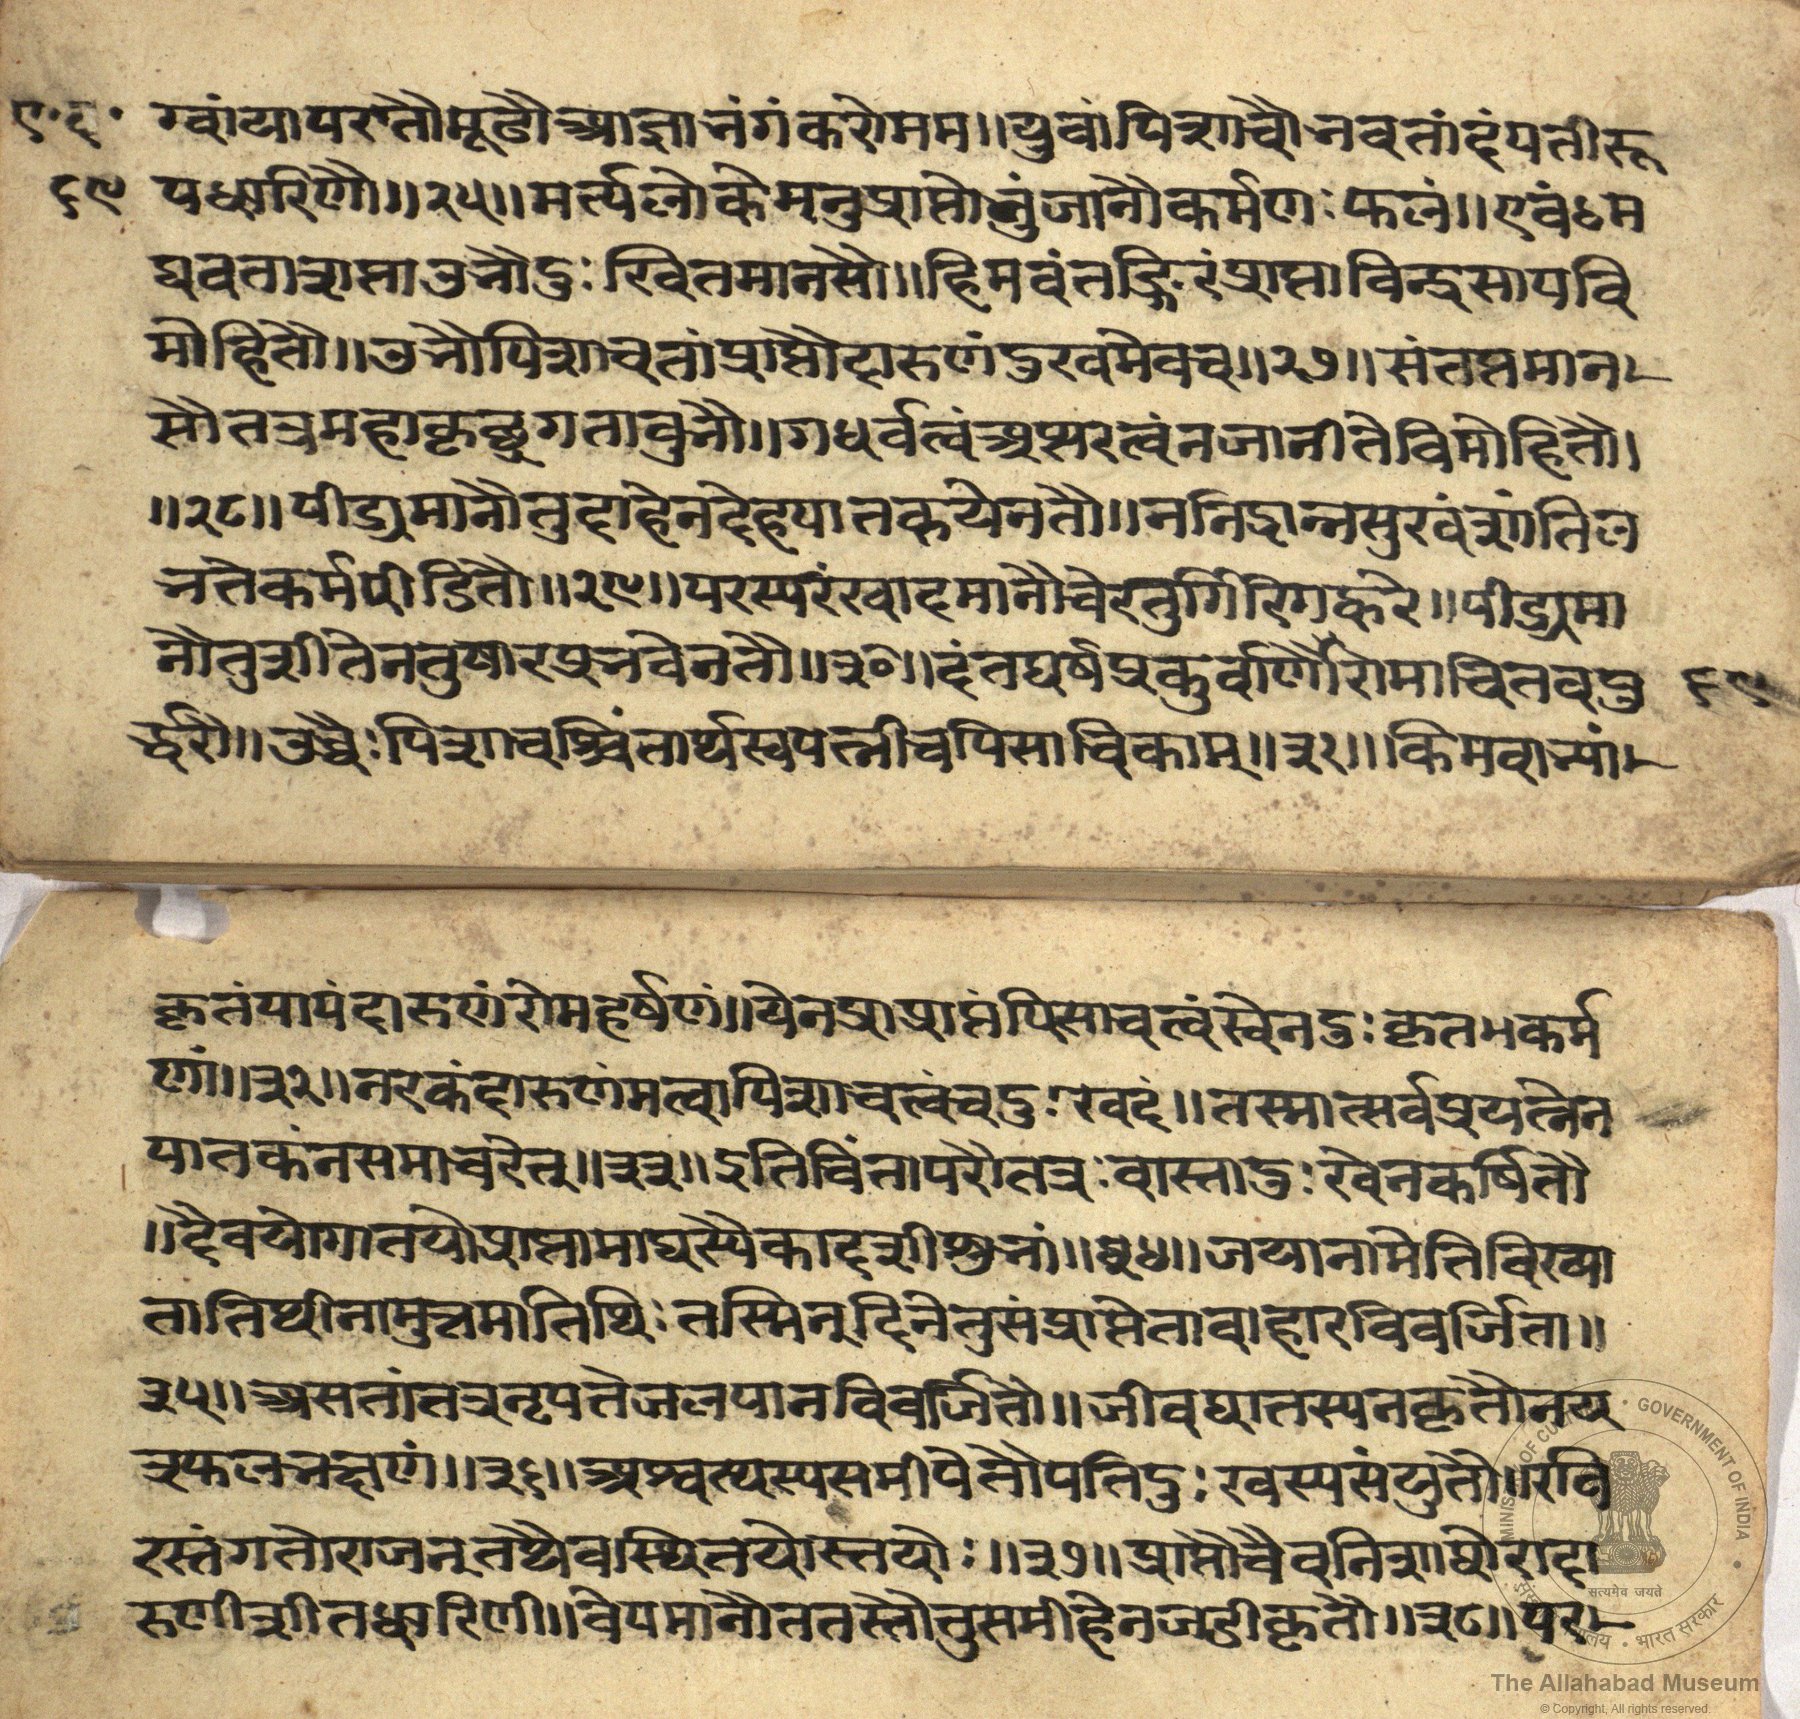 ए॰ द॰
६९
ग्वांयापरतौमूढौआज्ञाभंगंकरोमम॥युवांपिशाचौभवतांदंपतीरू
पधारिणौ॥२५॥मर्त्यलोकेमनुप्राप्तौभुंजानौकर्मणःफलं॥एवंऽम
घवताशप्ताउभौदुःखितमानसौ॥हिमवंतङ्गिरंप्राप्ताविन्द्रसापवि
मोहितौ॥उभौपिशाचतांप्राप्तौदारुणंदुखमेवच॥२७॥संतप्तमान
सौतत्रमहाकृछ्रगतावुभौ॥गधर्वत्वंअप्सरत्वंनजानीतेविमोहितौ।
॥२८॥पीड्यमानौतुदाहेनदेहपातकयेनतौ॥ननिद्रान्नसुखंशांतिल
भतेकर्मपीडितौ॥२९॥परस्परंखादमानौचेरतुर्गिरिगकरे॥पीड्यमा
नौतुशीतेनतुषारप्रभवेनतौ॥३०॥दंतघर्षप्रकुर्वाणौरोमाचितवपु
६९
र्द्धरौ॥उच्चैःपिशाचश्चिंतार्थस्वपत्नीचपिसाचिकाम्॥३१॥किमवान्यां
कृतंपापंदारुणंरोमहर्षणं॥येनप्राप्राप्तंपिसाचत्वंस्वेनदुःकृतमकर्म
णां॥३२॥नरकंदारुणंमत्वापिशाचत्वंचदुःखदं॥तस्मात्सर्वप्रयत्नेन
पातकंनसमाचरेत्॥३३॥इतिचिंतापरौतत्रःवास्तादुःखेनकर्षितौ
॥दैवयोगातयोप्राप्तामाघस्यैकादशीशुभां॥३४॥जयानामेतिविख्या
तातिथीनामुत्तमातिथिःतस्मिन्दिनेतुसंप्राप्तेतावाहारविवर्जिता॥
३५॥असतांतत्रनृपतेजलपानविवर्जितौ॥जीवघातस्यनकृतौनय
त्रफलभक्षणं॥३६॥अश्वत्थस्यसमीपेतौपतिदुःखस्यसंयुतौ॥रवि
रस्तंगतोराजन्तथैवस्थितयोस्तयोः॥३७॥प्राप्तौचैवनिशाघोरादा
रुणीशीतधारिणी॥वेपमानौततस्तौतुसमीहेनजडीकृतौ॥३८॥पर
MINISTRY OF CULTURE • GOVERNMENT OF INDIA
सत्यमेव जयते
भारत सरकार
The Allahabad Museum
© Copyright, All rights reserved.